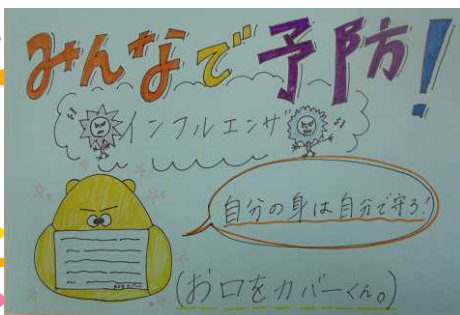 みんなで予防!
インフルエンザ
自分の身は自分で守ろ!
(お口をカバーくん。)